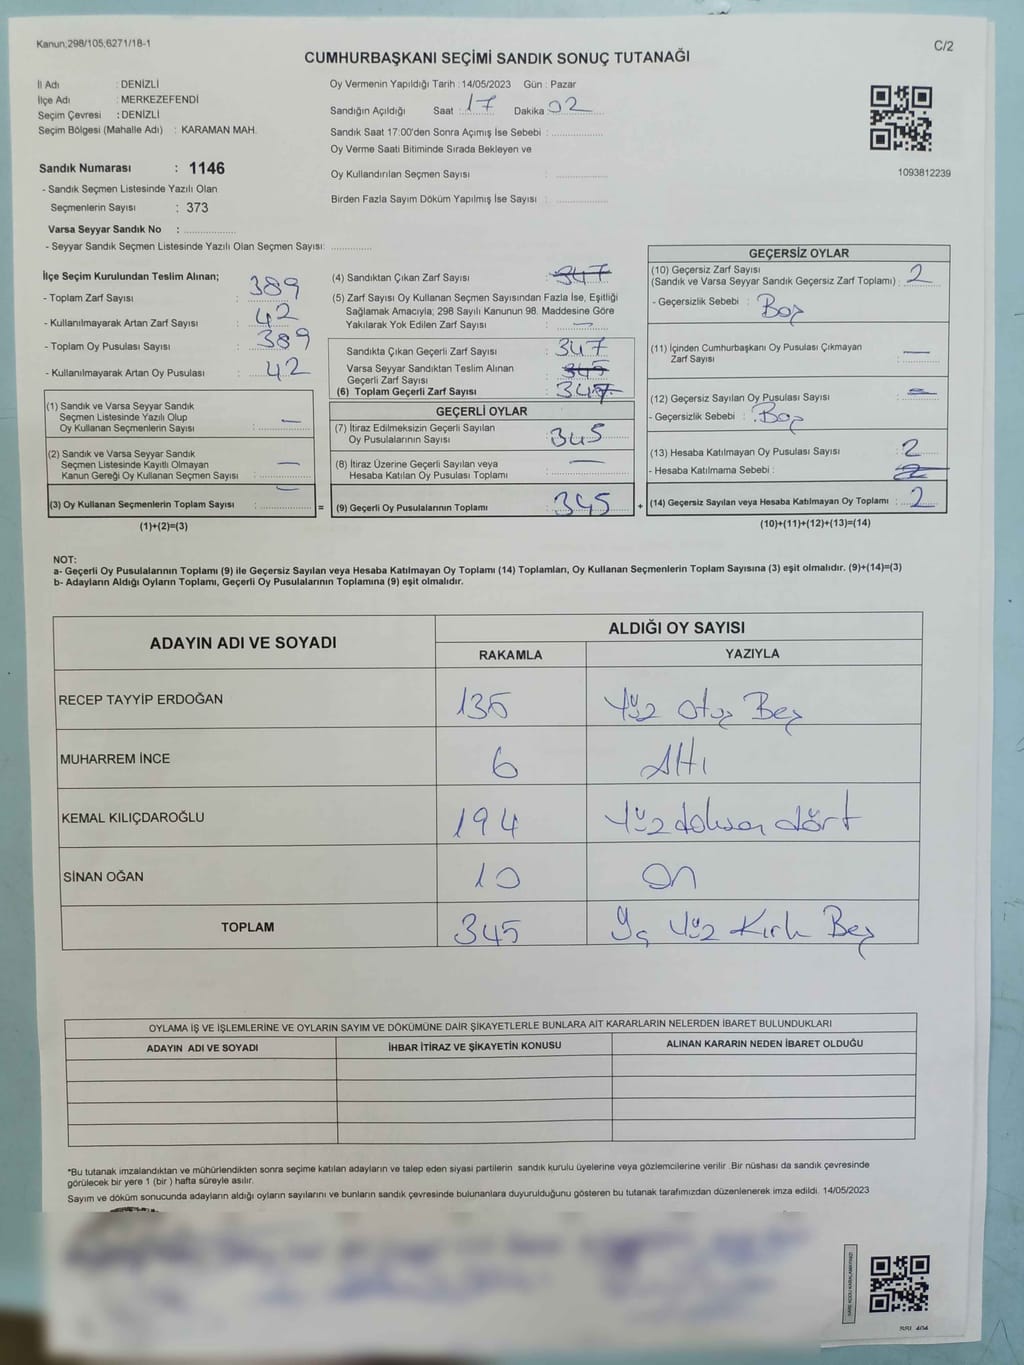 Kanun;298/105;6271/18-1
C/2
CUMHURBAŞKANI SEÇİMİ SANDIK SONUÇ TUTANAĞI
İl Adı : DENİZLİ
İlçe Adı : MERKEZEFENDİ
Seçim Çevresi : DENİZLİ
Seçim Bölgesi (Mahalle Adı) : KARAMAN MAH.
Sandık Numarası : 1146
- Sandık Seçmen Listesinde Yazılı Olan
Seçmenlerin Sayısı : 373
Varsa Seyyar Sandık No :
- Seyyar Sandık Seçmen Listesinde Yazılı Olan Seçmen Sayısı:
Oy Vermenin Yapıldığı Tarih : 14/05/2023 Gün : Pazar
Sandığın Açıldığı Saat : 17 Dakika : 02
Sandık Saat 17:00'den Sonra Açımış İse Sebebi :
Oy Verme Saati Bitiminde Sırada Bekleyen ve
Oy Kullandırılan Seçmen Sayısı :
Birden Fazla Sayım Döküm Yapılmış İse Sayısı :
1093812239
İlçe Seçim Kurulundan Teslim Alınan;
- Toplam Zarf Sayısı : 389
- Kullanılmayarak Artan Zarf Sayısı : 42
- Toplam Oy Pusulası Sayısı : 389
- Kullanılmayarak Artan Oy Pusulası : 42
(1) Sandık ve Varsa Seyyar Sandık
Seçmen Listesinde Yazılı Olup
Oy Kullanan Seçmenlerin Sayısı : —
(2) Sandık ve Varsa Seyyar Sandık
Seçmen Listesinde Kayıtlı Olmayan
Kanun Gereği Oy Kullanan Seçmen Sayısı : —
(3) Oy Kullanan Seçmenlerin Toplam Sayısı : —
(1)+(2)=(3)
=
(4) Sandıktan Çıkan Zarf Sayısı : 347
(5) Zarf Sayısı Oy Kullanan Seçmen Sayısından Fazla İse, Eşitliği
Sağlamak Amacıyla; 298 Sayılı Kanunun 98. Maddesine Göre
Yakılarak Yok Edilen Zarf Sayısı : —
Sandıkta Çıkan Geçerli Zarf Sayısı : 347
Varsa Seyyar Sandıktan Teslim Alınan
Geçerli Zarf Sayısı : 345
(6) Toplam Geçerli Zarf Sayısı : 347
GEÇERLİ OYLAR
(7) İtiraz Edilmeksizin Geçerli Sayılan
Oy Pusulalarının Sayısı : 345
(8) İtiraz Üzerine Geçerli Sayılan veya
Hesaba Katılan Oy Pusulası Toplamı : —
(9) Geçerli Oy Pusulalarının Toplamı : 345
+
GEÇERSİZ OYLAR
(10) Geçersiz Zarf Sayısı
(Sandık ve Varsa Seyyar Sandık Geçersiz Zarf Toplamı) : 2
- Geçersizlik Sebebi : Boş
(11) İçinden Cumhurbaşkanı Oy Pusulası Çıkmayan
Zarf Sayısı : —
(12) Geçersiz Sayılan Oy Pusulası Sayısı :
- Geçersizlik Sebebi : Boş
(13) Hesaba Katılmayan Oy Pusulası Sayısı : 2
- Hesaba Katılmama Sebebi : 2
(14) Geçersiz Sayılan veya Hesaba Katılmayan Oy Toplamı : 2
(10)+(11)+(12)+(13)=(14)
NOT:
a- Geçerli Oy Pusulalarının Toplamı (9) ile Geçersiz Sayılan veya Hesaba Katılmayan Oy Toplamı (14) Toplamları, Oy Kullanan Seçmenlerin Toplam Sayısına (3) eşit olmalıdır. (9)+(14)=(3)
b- Adayların Aldığı Oyların Toplamı, Geçerli Oy Pusulalarının Toplamına (9) eşit olmalıdır.
ADAYIN ADI VE SOYADI
ALDIĞI OY SAYISI
RAKAMLA YAZIYLA
RECEP TAYYİP ERDOĞAN 135 Yüz Otuz Beş
MUHARREM İNCE 6 Altı
KEMAL KILIÇDAROĞLU 194 Yüz doksan dört
SİNAN OĞAN 10 On
TOPLAM 345 Üç Yüz Kırk Beş
OYLAMA İŞ VE İŞLEMLERİNE VE OYLARIN SAYIM VE DÖKÜMÜNE DAİR ŞİKAYETLERLE BUNLARA AİT KARARLARIN NELERDEN İBARET BULUNDUKLARI
ADAYIN ADI VE SOYADI İHBAR İTİRAZ VE ŞİKAYETİN KONUSU ALINAN KARARIN NEDEN İBARET OLDUĞU
*Bu tutanak imzalandıktan ve mühürlendikten sonra seçime katılan adayların ve talep eden siyasi partilerin sandık kurulu üyelerine veya gözlemcilerine verilir .Bir nüshası da sandık çevresinde
görülecek bir yere 1 (bir ) hafta süreyle asılır.
Sayım ve döküm sonucunda adayların aldığı oyların sayılarını ve bunların sandık çevresinde bulunanlara duyurulduğunu gösteren bu tutanak tarafımızdan düzenlenerek imza edildi. 14/05/2023